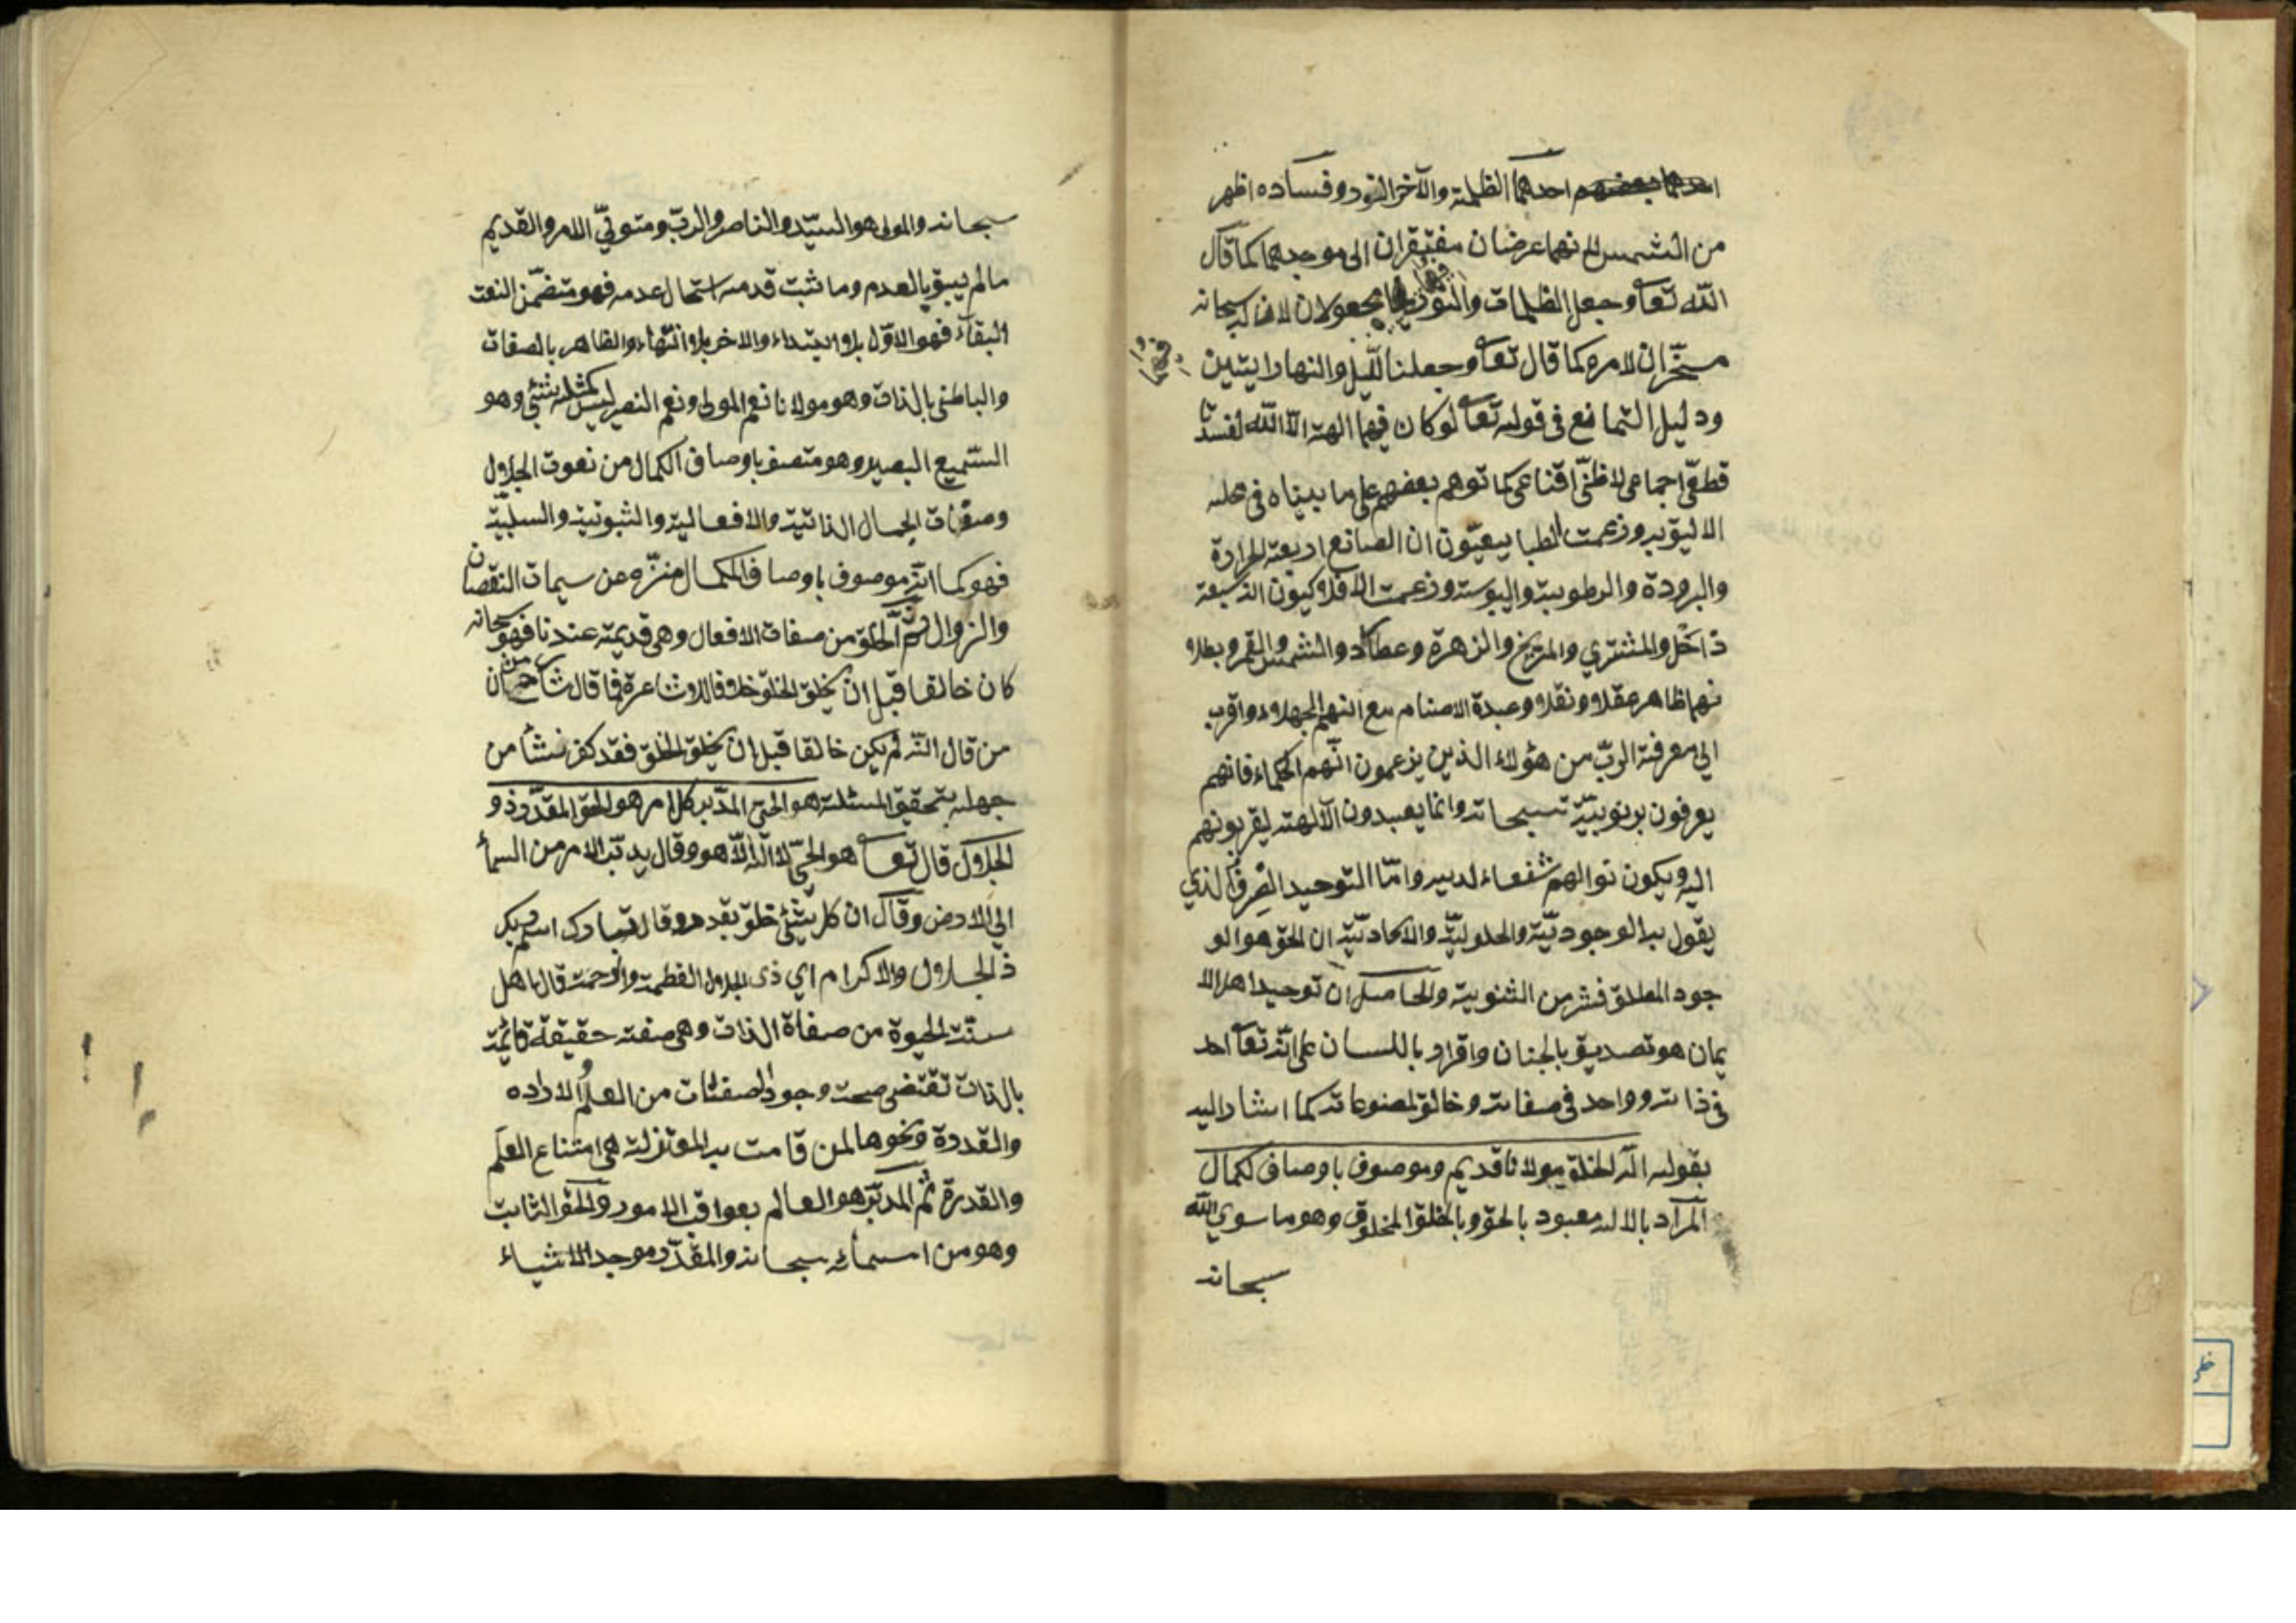 احدهما الظلمة والآخر النور وفساده اظهر
من الشمس لانهما عرضان مفتقران الى موجدهما كما قال
الله تعا وجعل الظلمات والنور فهما مجعولان لانه سبحانه
مسخران لامره كما قال تعا وجعلنا الليل والنهار ايتين
فهما
ودليل التمانع فى قوله تعا لو كان فيهما الهة الا الله لفسدتا
قطعى اجماعى لا ظنى اقناعى كما توهم بعضهم على ما بيناه فى محله
الاليق به وزعمت الطبايعيون ان الصانع اربعة الحرارة
والبرودة والرطوبة واليبوسة وزعمت الافلاكيون انه سبعة
ذاحل والمشترى والمريخ والزهرة وعطارد والشمس والقمر وبطلا
نهما ظاهر عقلا ونقلا وعبدة الاصنام مع انهم الجهلاء واقرب
الي معرفة الرب من هؤلاء الذين يزعمون انهم الحكماء فانهم
يعرفون بربوبيته سبحانه وانما يعبدون الآلهة ليقربونهم
اليه ويكون نوالهم شفعاء لديه واما التوحيد الصرف الذي
يقول به الوجودية والحلولية والاتحادية ان الحق هو الو
جود المطلق فشر من الثنوية والحاصل ان توحيد اهل الا
يمان هو تصديق بالجنان واقرار باللسان على انه تعا احد
فى ذاته وواحد فى صفاته وخالق لمصنوعاته كما اشار اليه
بقوله اله الخلق مولانا قديم وموصوف باوصاف لكمال
المراد بالاله معبود بالحق وبالخلق المخلوق وهو ما سوي الله
سبحانه
سبحانه والمولى هو السيد والناصر والرب ومتولي الامر والقديم
مالم يسبق بالعدم وما ثبت قدمه استحال عدمه فهو متضمن النعت
البقاء فهو الاول بلا ابتداء والاخر بلا انتهاء والظاهر بالصفات
والباطن بالذات وهو مولانا نعم المولى ونعم النصير ليس كمثله شئ وهو
السميع البصير وهو متصف باوصاف الكمال من نعوت الجلال
وصفات الجمال الذاتية والافعالية والثبوتية والسلبية
فهو كما انه موصوف باوصاف الكمال منزه عن سيمات النقصان
والزوال ثم الخلق من صفات الافعال وهى قديمة عندنا فهو سبحانه
كان خالقا قبل ان يخلق الخلق خلافا للاشاعرة فما قال شارح من ان
من قال انه لم يكن خالقا قبل ان يخلق الخلق فقد كفر نشأ من
جهله بتحقيق المسئلة هو الحى المدبر كل امر هو الحق المقدر ذو
الجلال قال تعا هو الحى لا اله الا هو وقال يدبر الامر من السماء
الي الارض وقال ان كل شئ خلق بقدر وقال تبارك اسم ربك
ذ الجلال والاكرام اي ذى الجلال العظمة والرحمة قال اهل
سنة الحيوة من صفاة الذات وهى صفة حقيقة قائمة
بالذات تقتضى صحة وجود الصفات من العلم والاراده
والقدرة ونحوها لمن قامت به المعتزلة هى امتناع العلم
والقدرة ثم المدبر هو العالم بعواقب الامور والحق الثابت
وهو من اسمائه سبحانه والمقدر موجد الاشياء